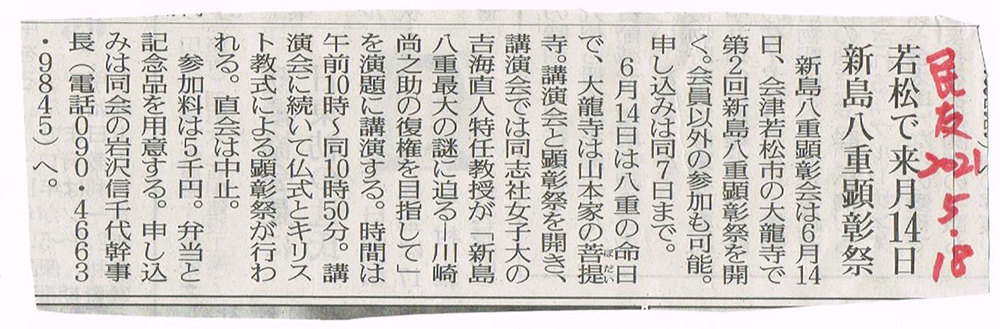 民友
2021
5.18
若松で来月14日
新島八重顕彰祭
新島八重顕彰会は6月14
日、会津若松市の大龍寺で
第2回新島八重顕彰祭を開
く。会員以外の参加も可能。
申し込みは同7日まで。
6月14日は八重の命日
で、大龍寺は山本家の菩提
ぼだい
寺。講演会と顕彰祭を開き、
講演会では同志社女子大の
吉海直人特任教授が「新島
八重最大の謎に迫る―川崎
尚之助の復権を目指して」
を演題に講演する。時間は
午前10時～同10時50分。講
演会に続いて仏式とキリス
ト教式による顕彰祭が行わ
れる。直会は中止。
参加料は5千円。弁当と
記念品を用意する。申し込
みは同会の岩沢信千代幹事
長（電話090・4663
・9845）へ。